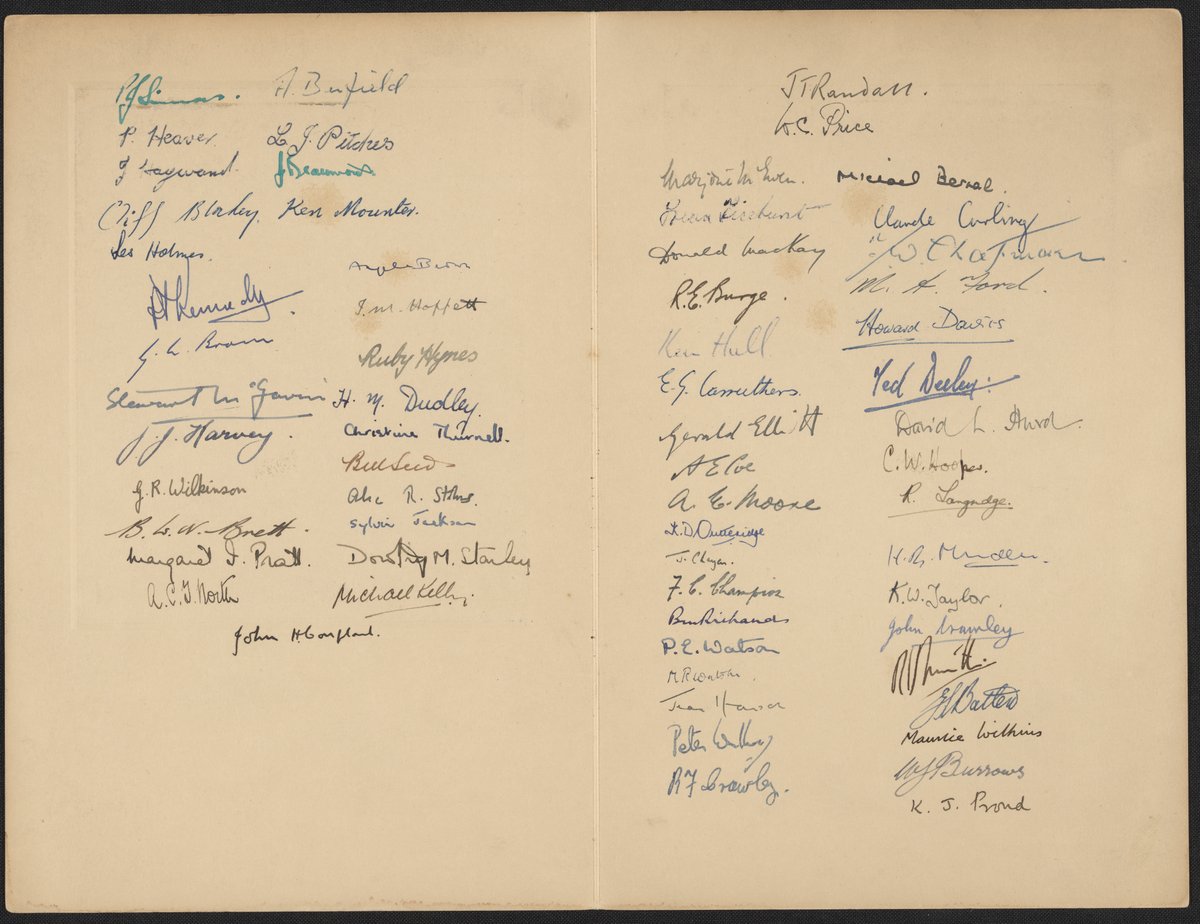 P. J. Simons. A. Benfield
P. Heaver. L. J. Pitches
F Hayward. J Beaumont
Cliff Blakey. Ken Mounter.
Les Holmes.
Angela Brown
H Kennedy.
J. M. Hoffett
G. L. Brown
Ruby Hynes
Stewart McGavin H. M. Dudley.
J. J. Harvey. Christine Thurnell.
Bill Seeds
G. R. Wilkinson R. Stokes
B. W. N. Brett. Sylvia Jackson
Margaret I. Pratt. Dorothy M. Stanley
A. C. T. North Michael Kelly.
John H. Coupland.
JT Randall.
W. C. Price
Marjorie McEwen. Michael Bernal.
Ticehurst Claude Curling
Donald MacKay W. Chapman
R. E. Burge. M. A. Ford.
Ken Hull Howard Davies
E. G. Carruthers. Ted Deeley.
Gerald Elliott David L. Hurd.
A E Coe C. W. Hooper.
A. E. Moore R. Langridge.
K. D. Outteridge
J. H. R. Munden.
F. C. Champion K. W. Taylor.
Ben Richards John Crawley
P. E. Watson
M R Watson.
Jean Hanson Batten
Peter Maurice Wilkins
R F Crawley. W J Burrows
K. J. Proud